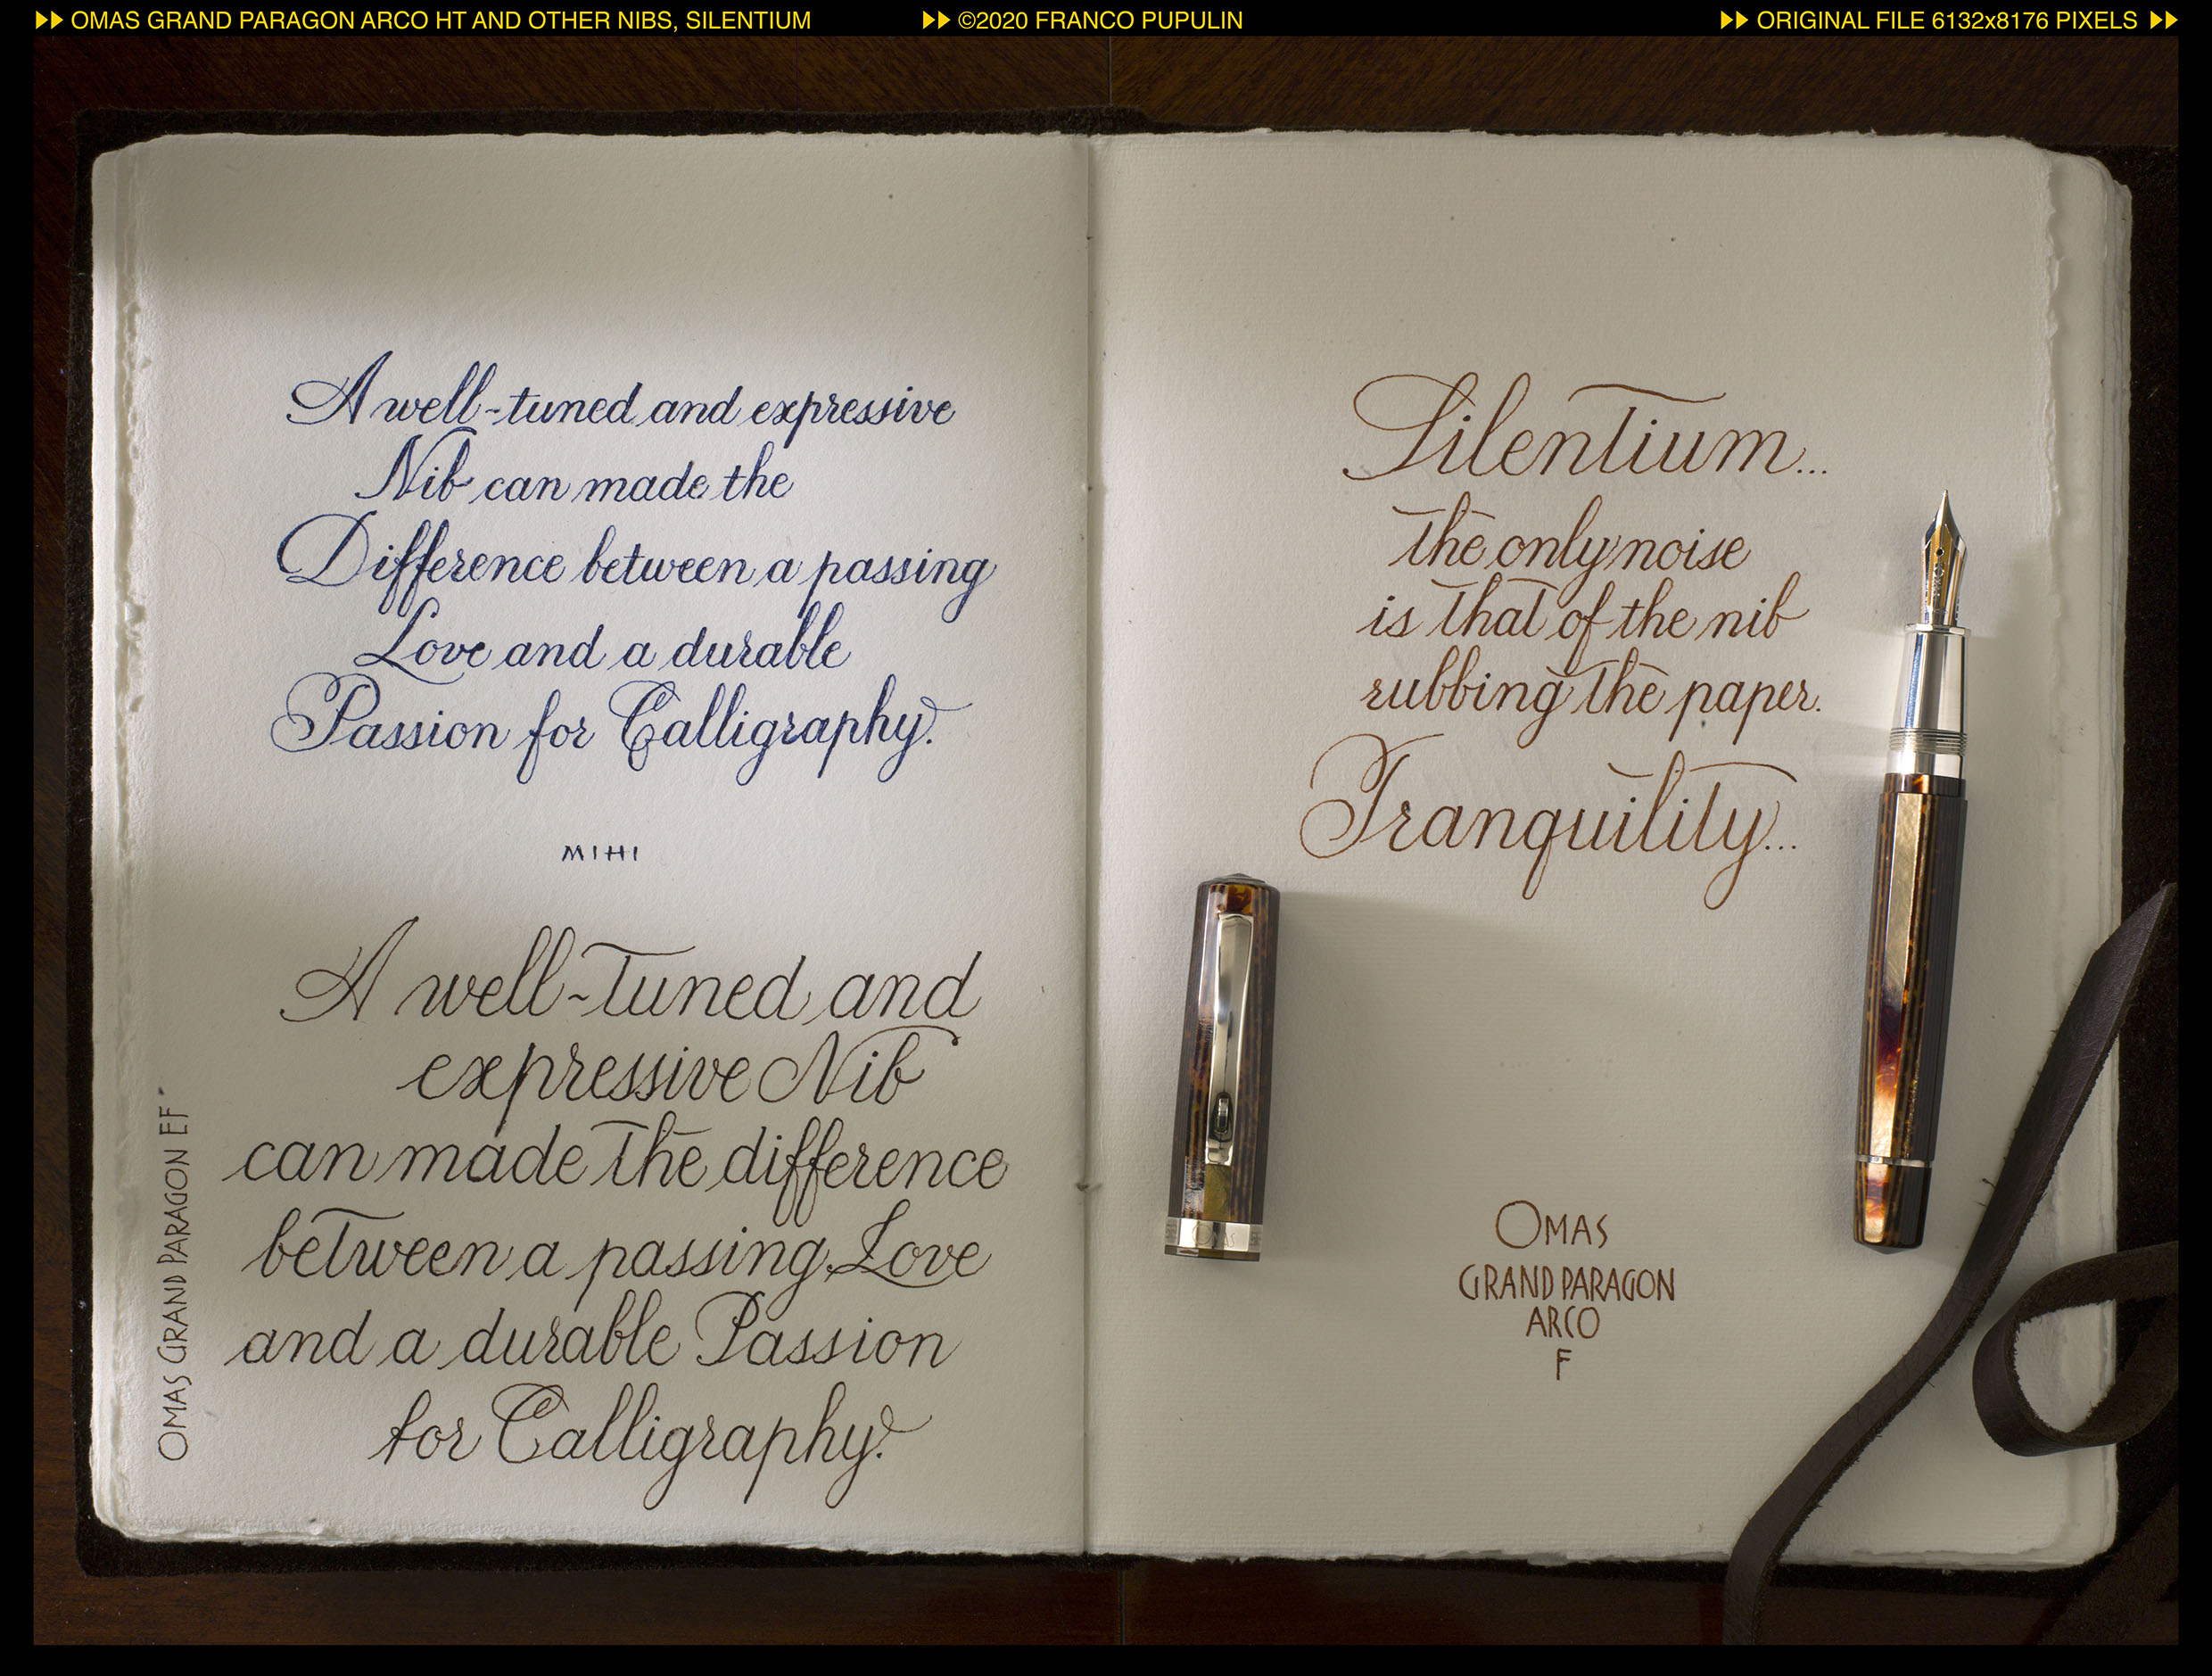 OMAS GRAND PARAGON ARCO HT AND OTHER NIBS, SILENTIUM
©2020 FRANCO PUPULIN
ORIGINAL FILE 6132x8176 PIXELS
A well-tuned and expressive
Nib can made the
Difference between a passing
Love and a durable
Passion for Calligraphy.
MIHI
A well-tuned and
expressive Nib
can made the difference
between a passing Love
and a durable Passion
for Calligraphy.
OMAS GRAND PARAGON EF
Silentium...
the only noise
is that of the nib
rubbing the paper.
Tranquility...
OMAS
GRAND PARAGON
ARCO
F